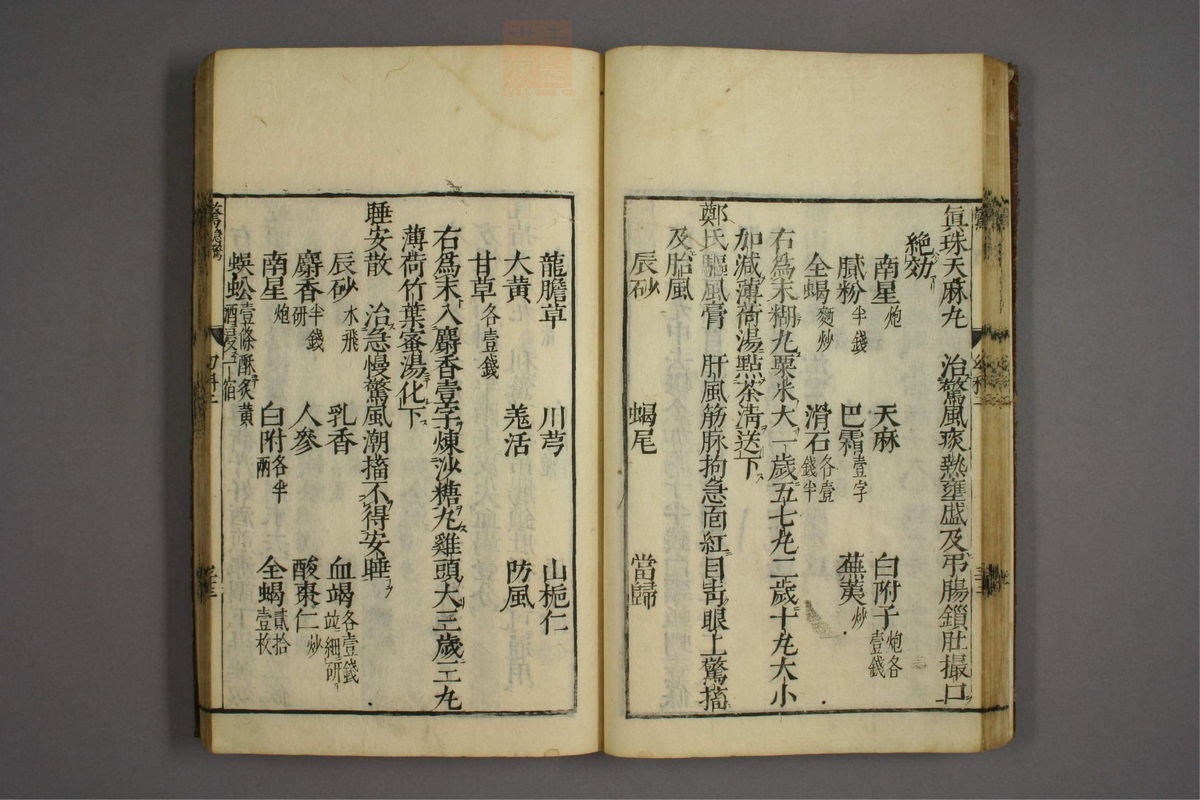 眞珠天麻丸　治驚風痰熱壅盛及吊腸鎖肚撮口
絶効
南星炮　天麻　白附子炮各壹錢
膩粉半錢　巴霜壹字　蕪荑炒
全蝎麵炒　滑石各壹錢半
右爲末糊丸粟米大一歲五七丸二歲十丸大小
加減薄荷湯點茶淸送下
鄭氏驅風膏　肝風筋脉拘急面紅目靑眼上驚搐
及胎風
辰砂　蝎尾　當歸
龍膽草　川芎　山梔仁
大黄　羗活　防風
甘草各壹錢
右爲末入麝香壹字煉沙糖丸雞頭大三歲二丸
薄荷竹葉蜜湯化下
睡安散　治急慢驚風潮搐不得安睡
辰砂水飛　乳香　血竭各壹錢竝細研
麝香半錢研　人參　酸棗仁炒
南星炮　白附各半兩　全蝎貳拾壹枚
蜈蚣壹條酥炙黄酒浸一宿